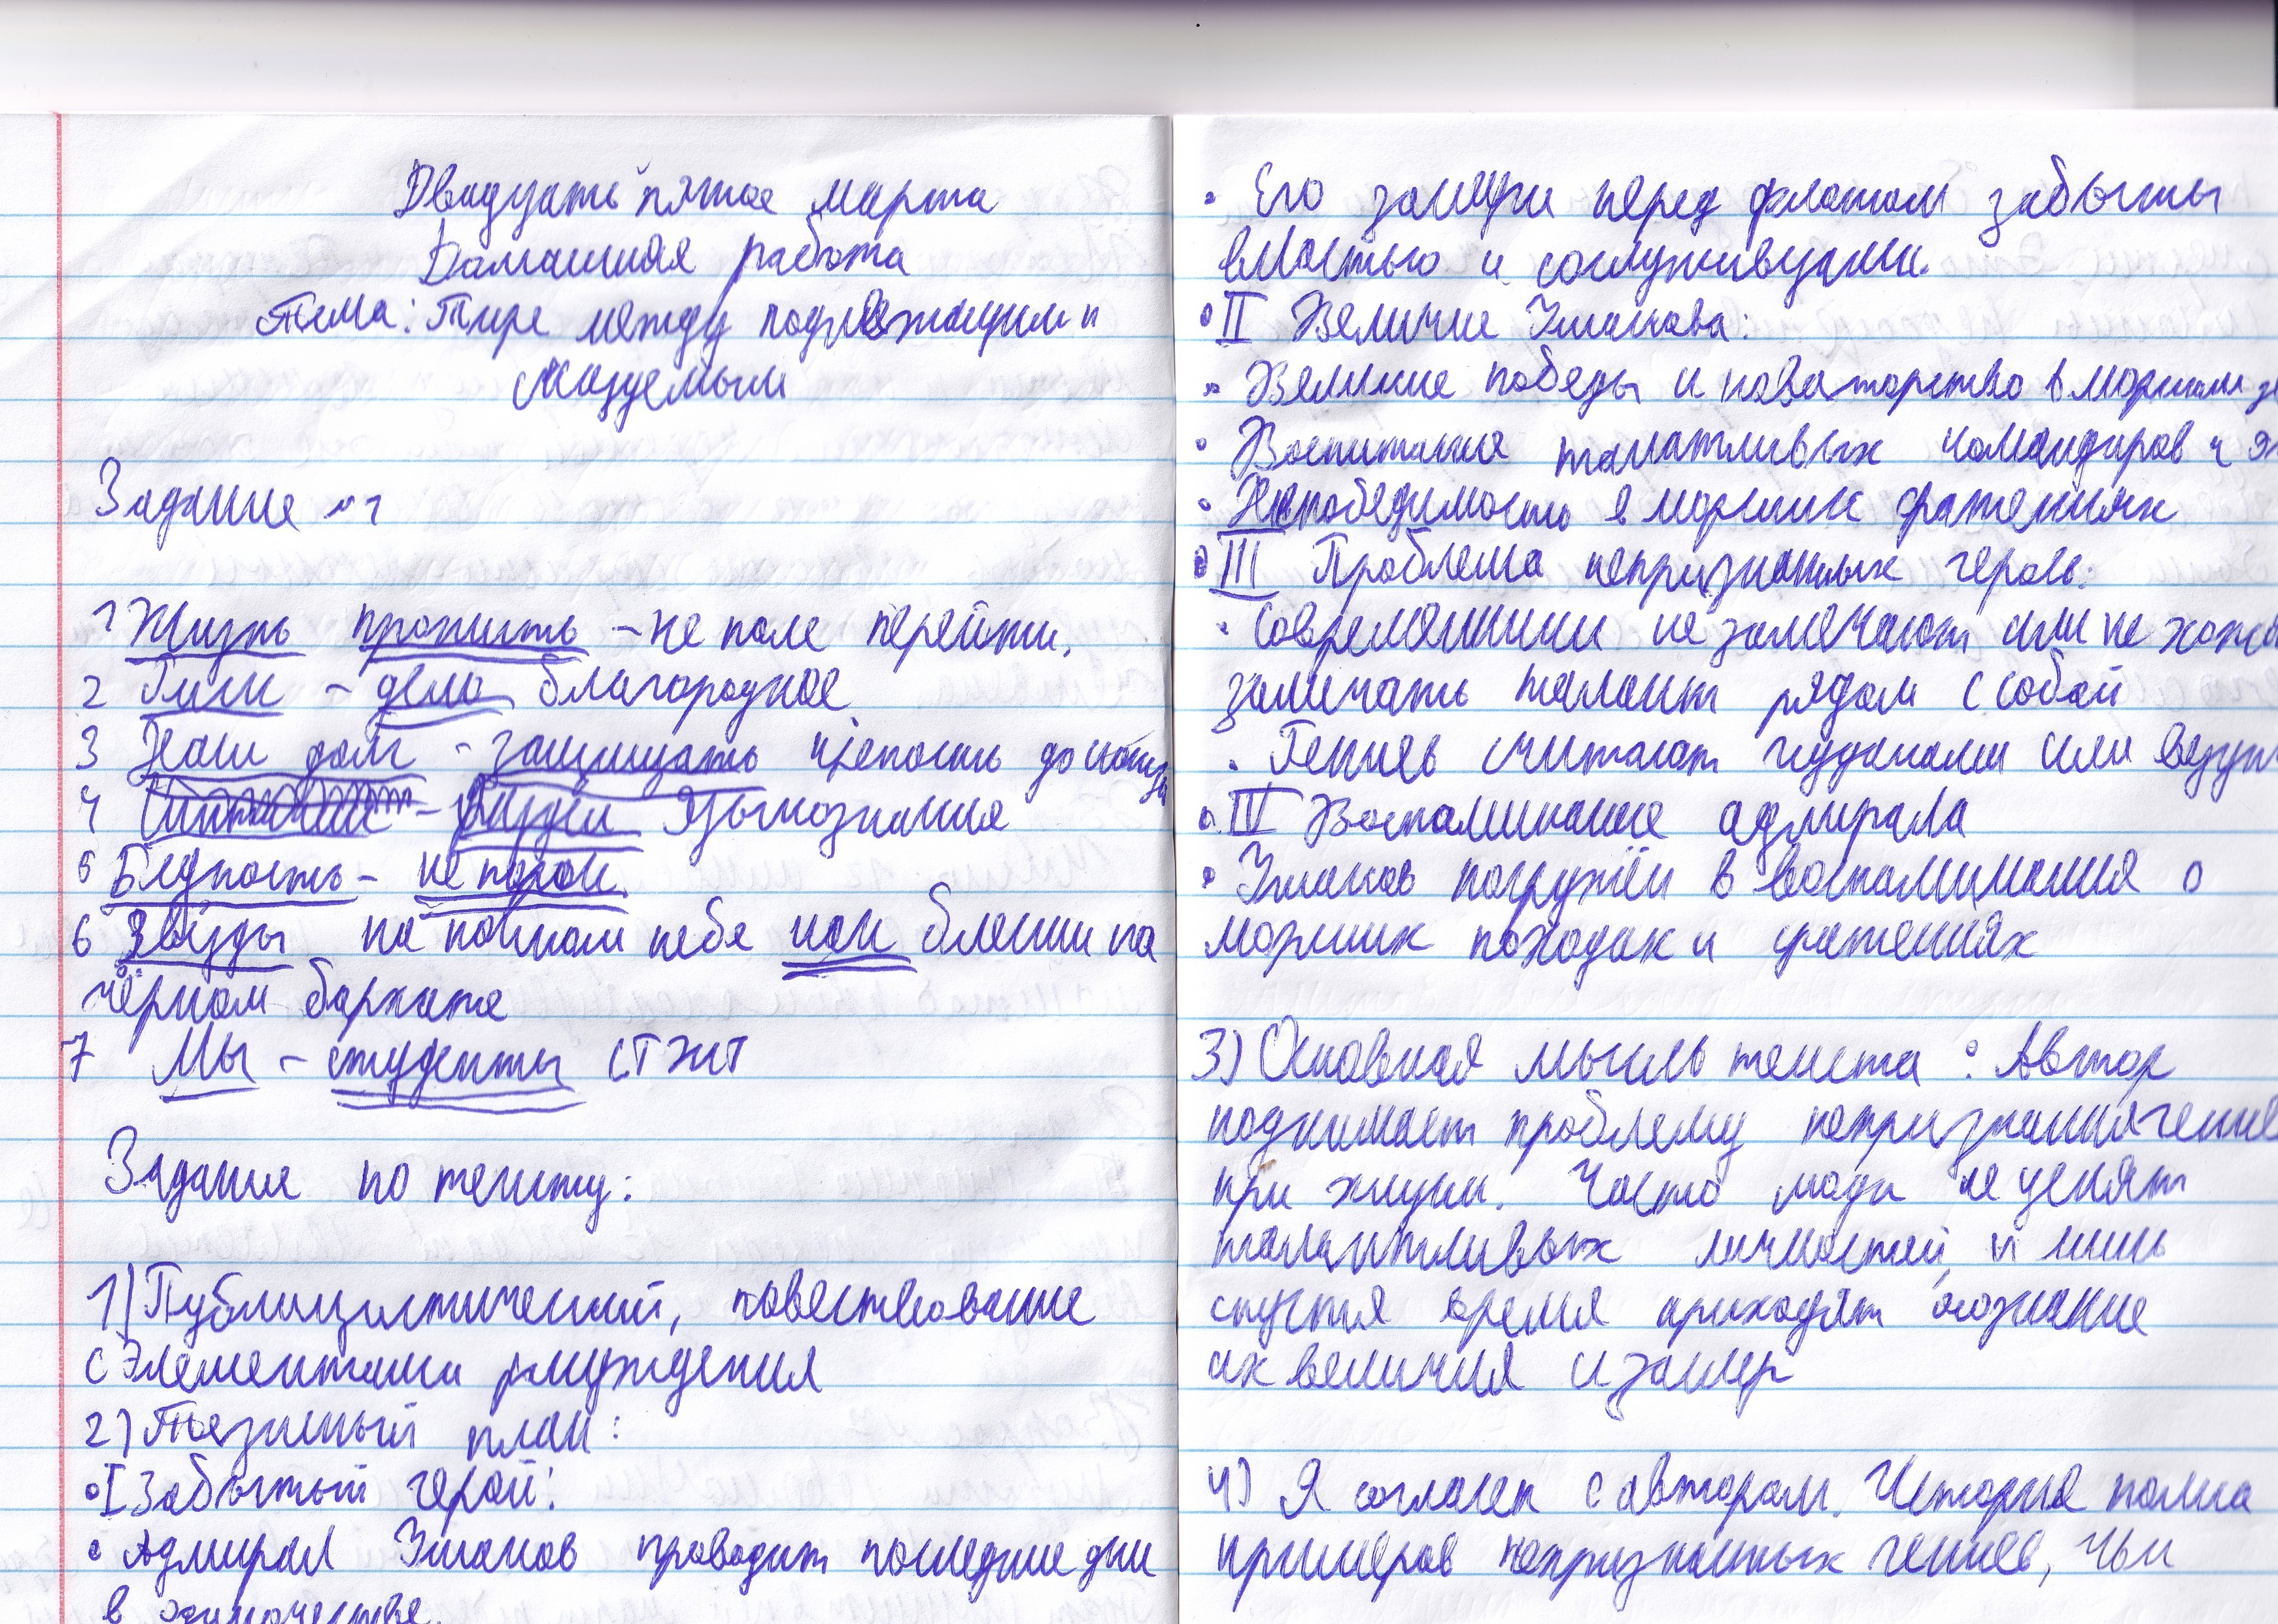 Двадцать пятое марта
Домашняя работа
Тема: Тире между подлежащим и
сказуемым
Задание №1
1 Жизнь прожить – не поле перейти.
2 Риск – дело благородное
3 Наш долг – защищать крепость до конца
4 – раздел языкознания
5 Бедность – не порок.
6 Звёзды на ночном небе как блёстки на
чёрном бархате
7 Мы – студенты СТЖТ
Задания по тексту:
1) Публицистический, повествование
с элементами рассуждения
2) Тезисный план:
• I Забытый герой:
• Адмирал Ушаков проводит последние дни
в одиночестве.
• Его заслуги перед флотом забыты
властью и сослуживцами.
• II Величие Ушакова:
• Великие победы и новаторство в морском
• Воспитание талантливых командиров и
• Непобедимость в морских сражениях
• III Проблема непризнанных героев:
• Современники не замечают или не
замечать талант рядом с собой
• Гениев считают чудаками или
• IV Воспоминание адмирала
• Ушаков погружён в воспоминания о
морских походах и сражениях
3) Основная мысль текста: Автор
поднимает проблему непризнания
при жизни. Часто люди не ценят
талантливых личностей, и лишь
спустя время приходят осознание
их величия и заслуг
4) Я согласен с автором. История полна
примеров непризнанных гениев, чьи